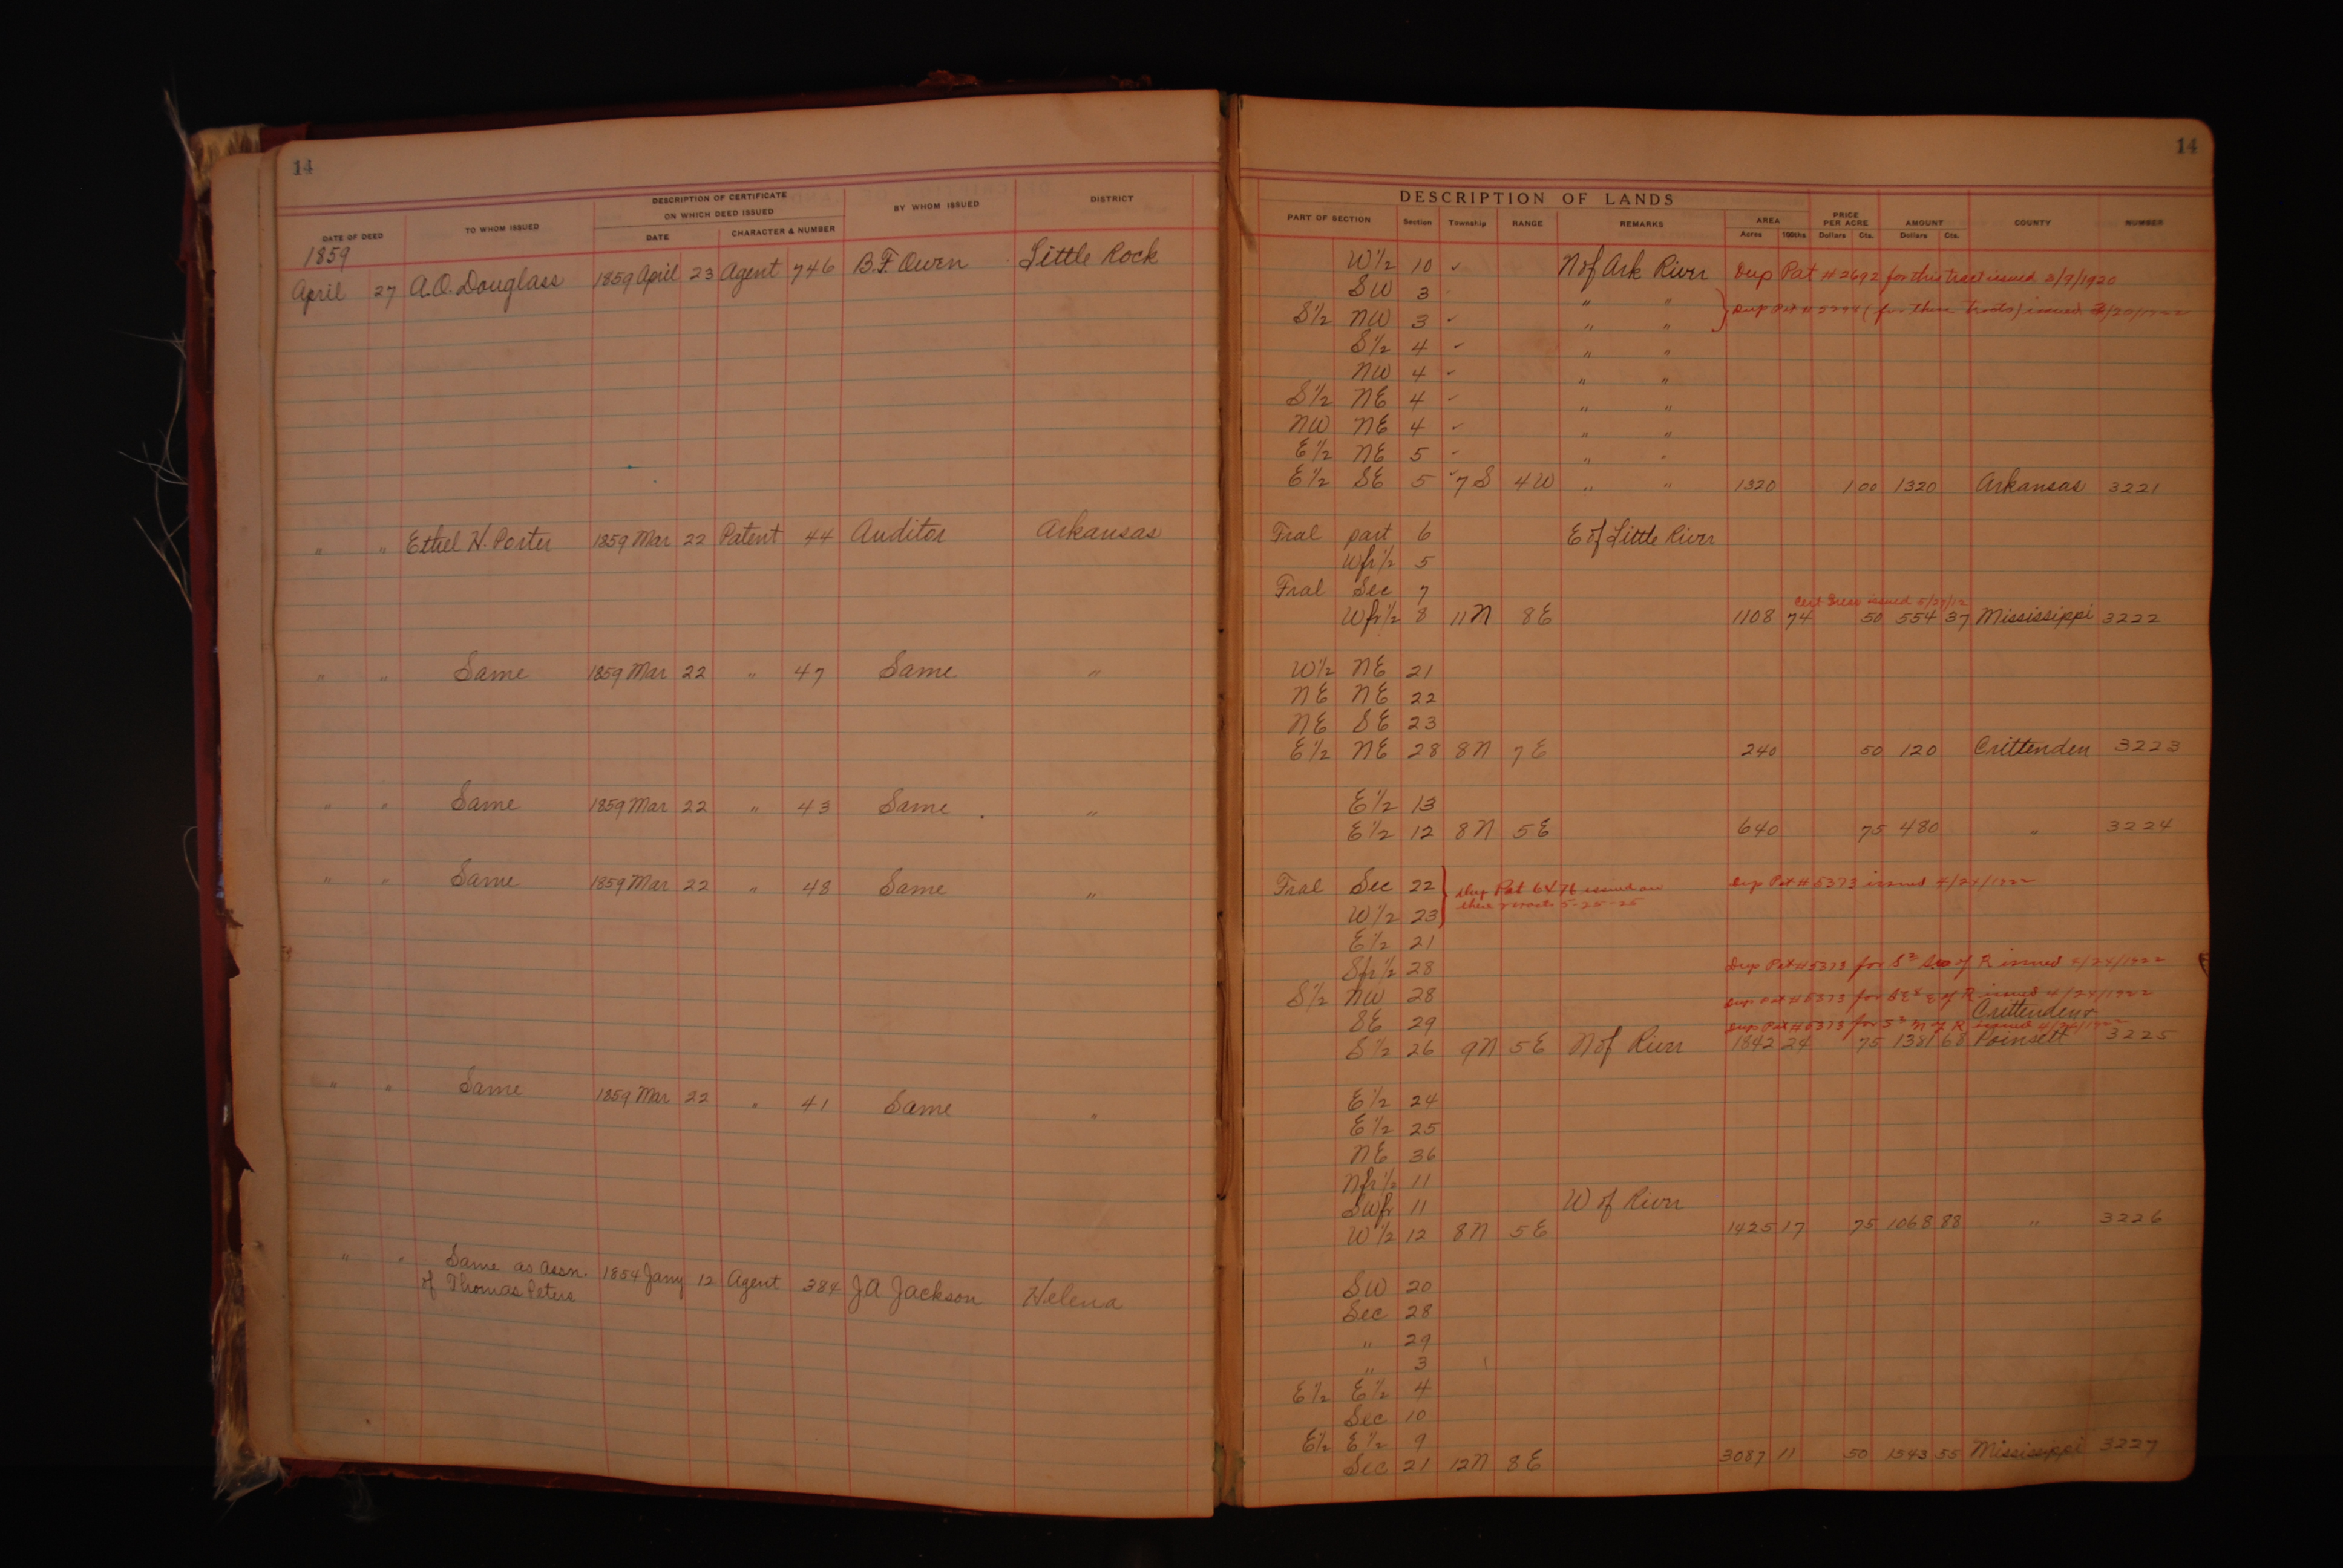 14
DESCRIPTION OF CERTIFICATE
ON WHICH DEED ISSUED
DATE OF DEED TO WHOM ISSUED DATE CHARACTER & NUMBER BY WHOM ISSUED DISTRICT
1859
April 27 A.O. Douglass 1859 April 23 Agent 746 B.F. Owen Little Rock
" " Ethel H. Porter 1859 Mar 22 Patent 44 Auditor Arkansas
" " Same 1859 Mar 22 " 47 Same "
" " Same 1859 Mar 22 " 43 Same "
" " Same 1859 Mar 22 " 48 Same "
" " Same 1859 Mar 22 " 41 Same "
" " Same as Assn. 1854 Jany 12 Agent 384 J A Jackson Helena
of Thomas Peters
14
DESCRIPTION OF LANDS
PART OF SECTION Section Township RANGE REMARKS AREA PRICE PER ACRE AMOUNT COUNTY NUMBER
Acres 100ths Dollars Cts. Dollars Cts.
W 1/2 10 ✓ N of Ark River Dup Pat # 2692 for this tract issued 2/9/1920
SW 3 " "
S 1/2 NW 3 ✓ " " Dup Pat # (for these tracts) issued
S 1/2 4 ✓ " "
NW 4 ✓ " "
S 1/2 NE 4 ✓ " "
NW NE 4 ✓ " "
E 1/2 NE 5 ✓ " "
E 1/2 SE 5 ✓ 7 S 4 W " " 1320 1 00 1320 Arkansas 3221
Fral part 6 E of Little River
W fr 1/2 5
Fral Sec 7
issued 5/29/12
W fr 1/2 8 11 N 8 E 1108 74 50 554 37 Mississippi 3222
W 1/2 NE 21
NE NE 22
NE SE 23
E 1/2 NE 28 8 N 7 E 240 50 120 Crittenden 3223
E 1/2 13
E 1/2 12 8 N 5 E 640 75 480 " 3224
Fral Sec 22 Dup Pat 6476 issued on Dup Pat # 5373 issued 4/24/1922
W 1/2 23 these 2 tracts 5-25-25
E 1/2 21
S fr 1/2 28 Dup Pat # 5373 for of R issued 4/24/1922
S 1/2 NW 28 Dup Pat # 5373 for of R issued 4/24/1922
SE 29 Dup Pat # 5373 for N of R issued 4/24/1922 Crittenden &
S 1/2 26 9 N 5 E N of River 1842 24 75 1381 68 Poinsett 3225
E 1/2 24
E 1/2 25
NE 36
N fr 1/2 11
SW fr 11 W of River
W 1/2 12 8 N 5 E 1425 17 75 1068 88 " 3226
SW 20
Sec 28
" 29
" 3
E 1/2 E 1/2 4
Sec 10
E 1/2 E 1/2 9
Sec 21 12 N 8 E 3087 11 50 1543 55 Mississippi 3227